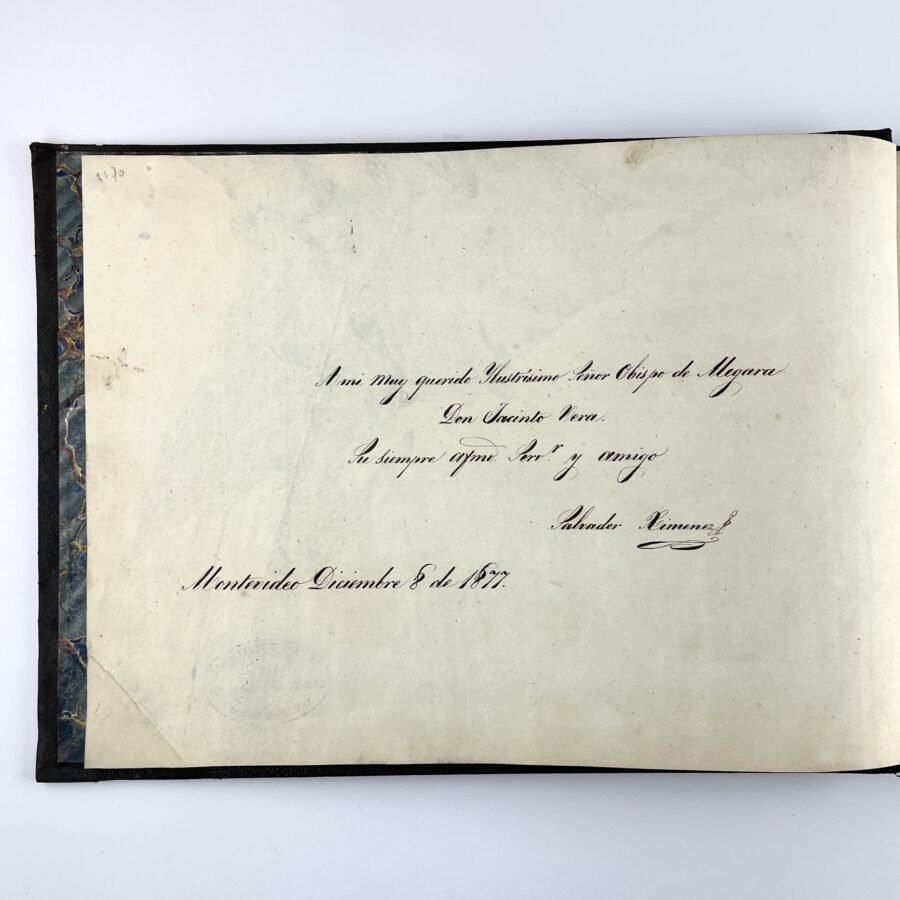 1870
A mi muy querido Ylustrísimo Señor Obispo de Megara
Don Jacinto Vera.
Su siempre afmo. Servr. y amigo
Salvador Ximenez
Montevideo Diciembre 8 de 1877.